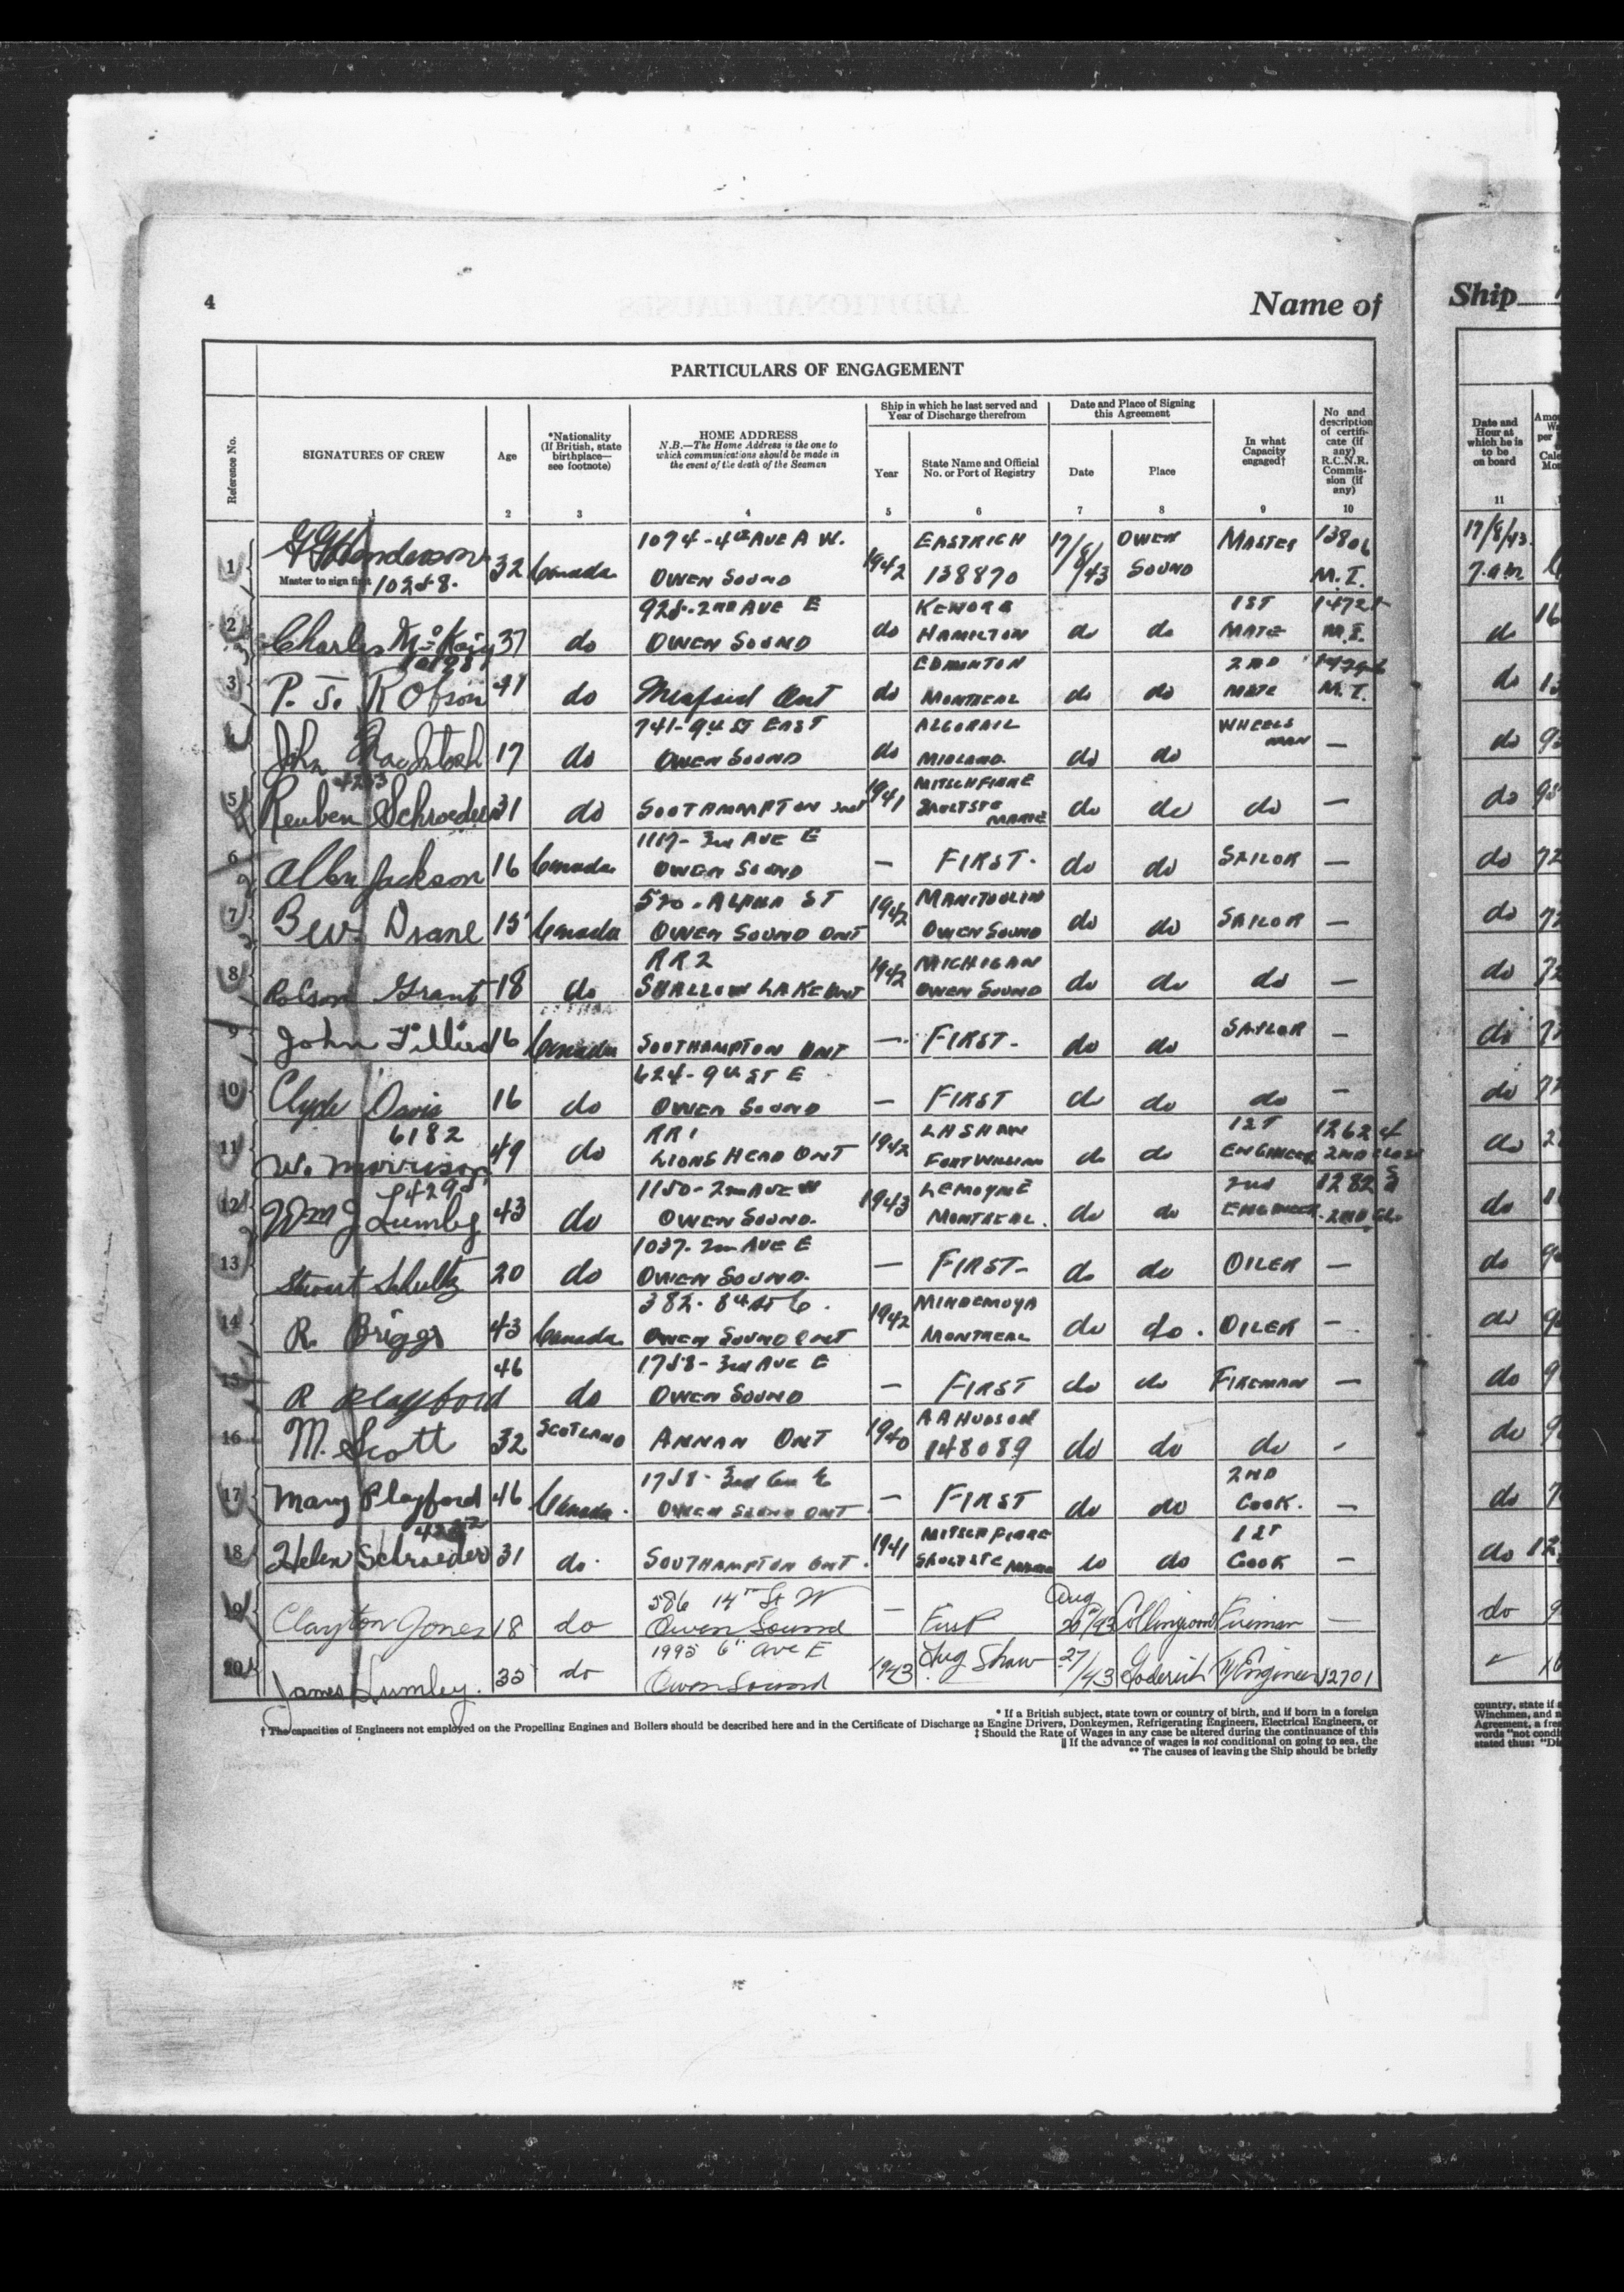 4
Name of
Ship
PARTICULARS OF ENGAGEMENT
Reference No.
SIGNATURES OF CREW
Age
*Nationality (If British, state birthplace— see footnote)
HOME ADDRESS
N.B.—The Home Address is the one to which communications should be made in the event of the death of the Seaman
Ship in which he last served and Year of Discharge therefrom
Year
State Name and Official No. or Port of Registry
Date and Place of Signing this Agreement
Date
Place
In what Capacity engaged†
No and description of certificate (if any) R.C.N.R. Commission (if any)
Date and Hour at which he is to be on board
1 2 3 4 5 6 7 8 9 10 11
1 Henderson 32 Canada 1074-4th AVE A W. OWEN SOUND 1942 EASTRICH 138870 17/8/43 OWEN SOUND MASTER 13806 M.I. 17/8/43. 7.am
Master to sign first 10258.
2 Charles McKaig 37 do 925-2nd AVE E OWEN SOUND do KENORA HAMILTON do do 1ST MATE M.I. do
3 P. J. Robson 41 do Meaford Ont do EDMONTON MONTREAL do do 2ND MATE M.I. do
4 John MacIntosh 17 do 741-9th ST EAST OWEN SOUND do ALGORAIL MIDLAND. do do WHEELSMAN — do
5 Reuben Schroeder 31 do SOOTAMMPTON Ont 1941 SAULT STE MARIE do do do — do
6 Allen Jackson 16 Canada 1117-3rd AVE E OWEN SOUND — FIRST. do do SAILOR — do
7 Bew. Drane 15 Canada 520-ALPHA ST OWEN SOUND ONT 1942 MANITOULIN OWEN SOUND do do SAILOR — do
8 Robson Grant 18 do RR2 SHALLOW LAKE ONT 1942 MICHIGAN OWEN SOUND do do do — do
9 John Tillies 16 Canada SOUTHAMPTON ONT — FIRST- do do SAILOR — do
10 Clyde Davis 16 do 624-9th ST E OWEN SOUND — FIRST do do do — do
11 6182 W. Morrison 49 do RR1 LIONS HEAD ONT 1942 LHSHAW FORT WILLIAM do do 1ST ENGINEER 12624 2ND CLASS do
12 Wm J Lumley 43 do 1150-2nd AVE W OWEN SOUND. 1943 LEMOYNE MONTREAL. do do 2nd ENGINEER. do
13 Stewart Schultz 20 do 1037-2nd AVE E OWEN SOUND. — FIRST- do do OILER — do
14 R. Briggs 43 Canada 382-8th St E. OWEN SOUND ONT 1942 MINDEMOYA MONTREAL do do. OILER — do
15 R Playford 46 do 1758-3rd AVE E OWEN SOUND — FIRST do do FIREMAN — do
16 M. Scott 32 SCOTLAND ANNAN ONT 1940 A A HUDSON 148089 do do do - do
17 Mary Playford 46 Canada. 1758-3rd Ave E OWEN SOUND ONT. — FIRST do do 2ND COOK. — do
18 Helen Schroeder 31 do. SOUTHAMPTON ONT. 1941 SAULT STE MARIE do do 1ST COOK — do
19 Clayton Jones 18 do 586 14th St W Owen Sound — First Aug 20th/43 Collingwood Fireman — do
20 James Lumley. 35 do 1995 6th Ave E Owen Sound 1943 Tug Shaw 27/43 Goderich Engineer 12701
* If a British subject, state town or country of birth, and if born in a foreign
† The capacities of Engineers not employed on the Propelling Engines and Boilers should be described here and in the Certificate of Discharge as Engine Drivers, Donkeymen, Refrigerating Engineers, Electrical Engineers, or
‡ Should the Rate of Wages in any case be altered during the continuance of this
‖ If the advance of wages is not conditional on going to sea, the
** The causes of leaving the Ship should be briefly
country, state if
Winchmen, and
Agreement, a
words "not
stated thus: